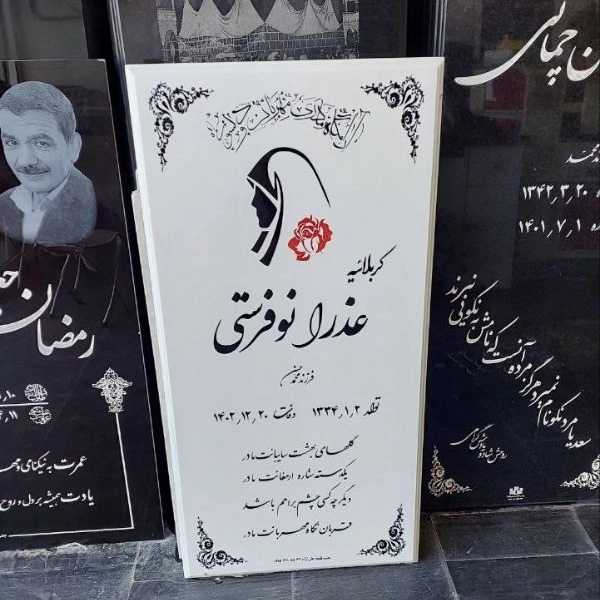 آرامگاه مادری مهربان و دلسوز
کربلائیه
عذرا نوفرستی
فرزند محمدحسن
تولد ۱۳۳۴٫۱٫۲ وفات ۱۴۰۲٫۱۲٫۲۰
گلهای بهشت سایبانت مادر
یکدسته ستاره ارمغانت مادر
دیگر چه کسی چشم براهم باشد
قربان نگاه مهربانت مادر
رمضان
عمرت به نیکنامی و مهر
یادت همیشه بر دل و روح
۱۳۴۲٫۳٫۲۰
۱۴۰۱٫۷٫۱
سعدیا مرد نکونام نمیرد هرگز
مرده آنست که نامش به نکویی نبرند
روحش شاد و یادش گرامی